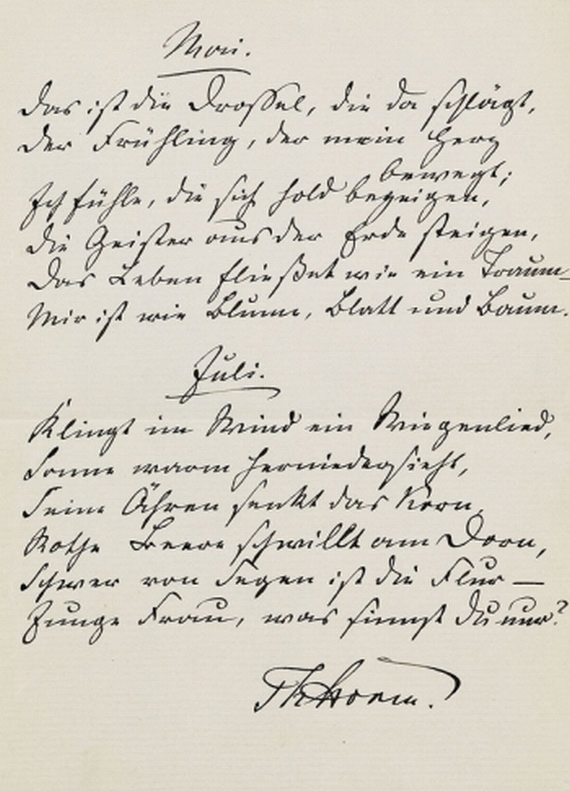 Mai.
Das ist die Drossel, die da schlägt,
Der Frühling, der mein Herz
bewegt;
Ich fühle, die sich hold bezeigen,
Die Geister aus der Erde steigen,
Das Leben fließet wie ein Traum
Mir ist wie Blume, Blatt und Baum.
Juli.
Klingt im Wind ein Wiegenlied,
Sonne warm herniedersieht,
Seine Ähren senkt das Korn,
Rothe Beere schwillt am Dorn,
Schwer von Segen ist die Flur —
Junge Frau, was sinnst Du nur?
ThStorm.